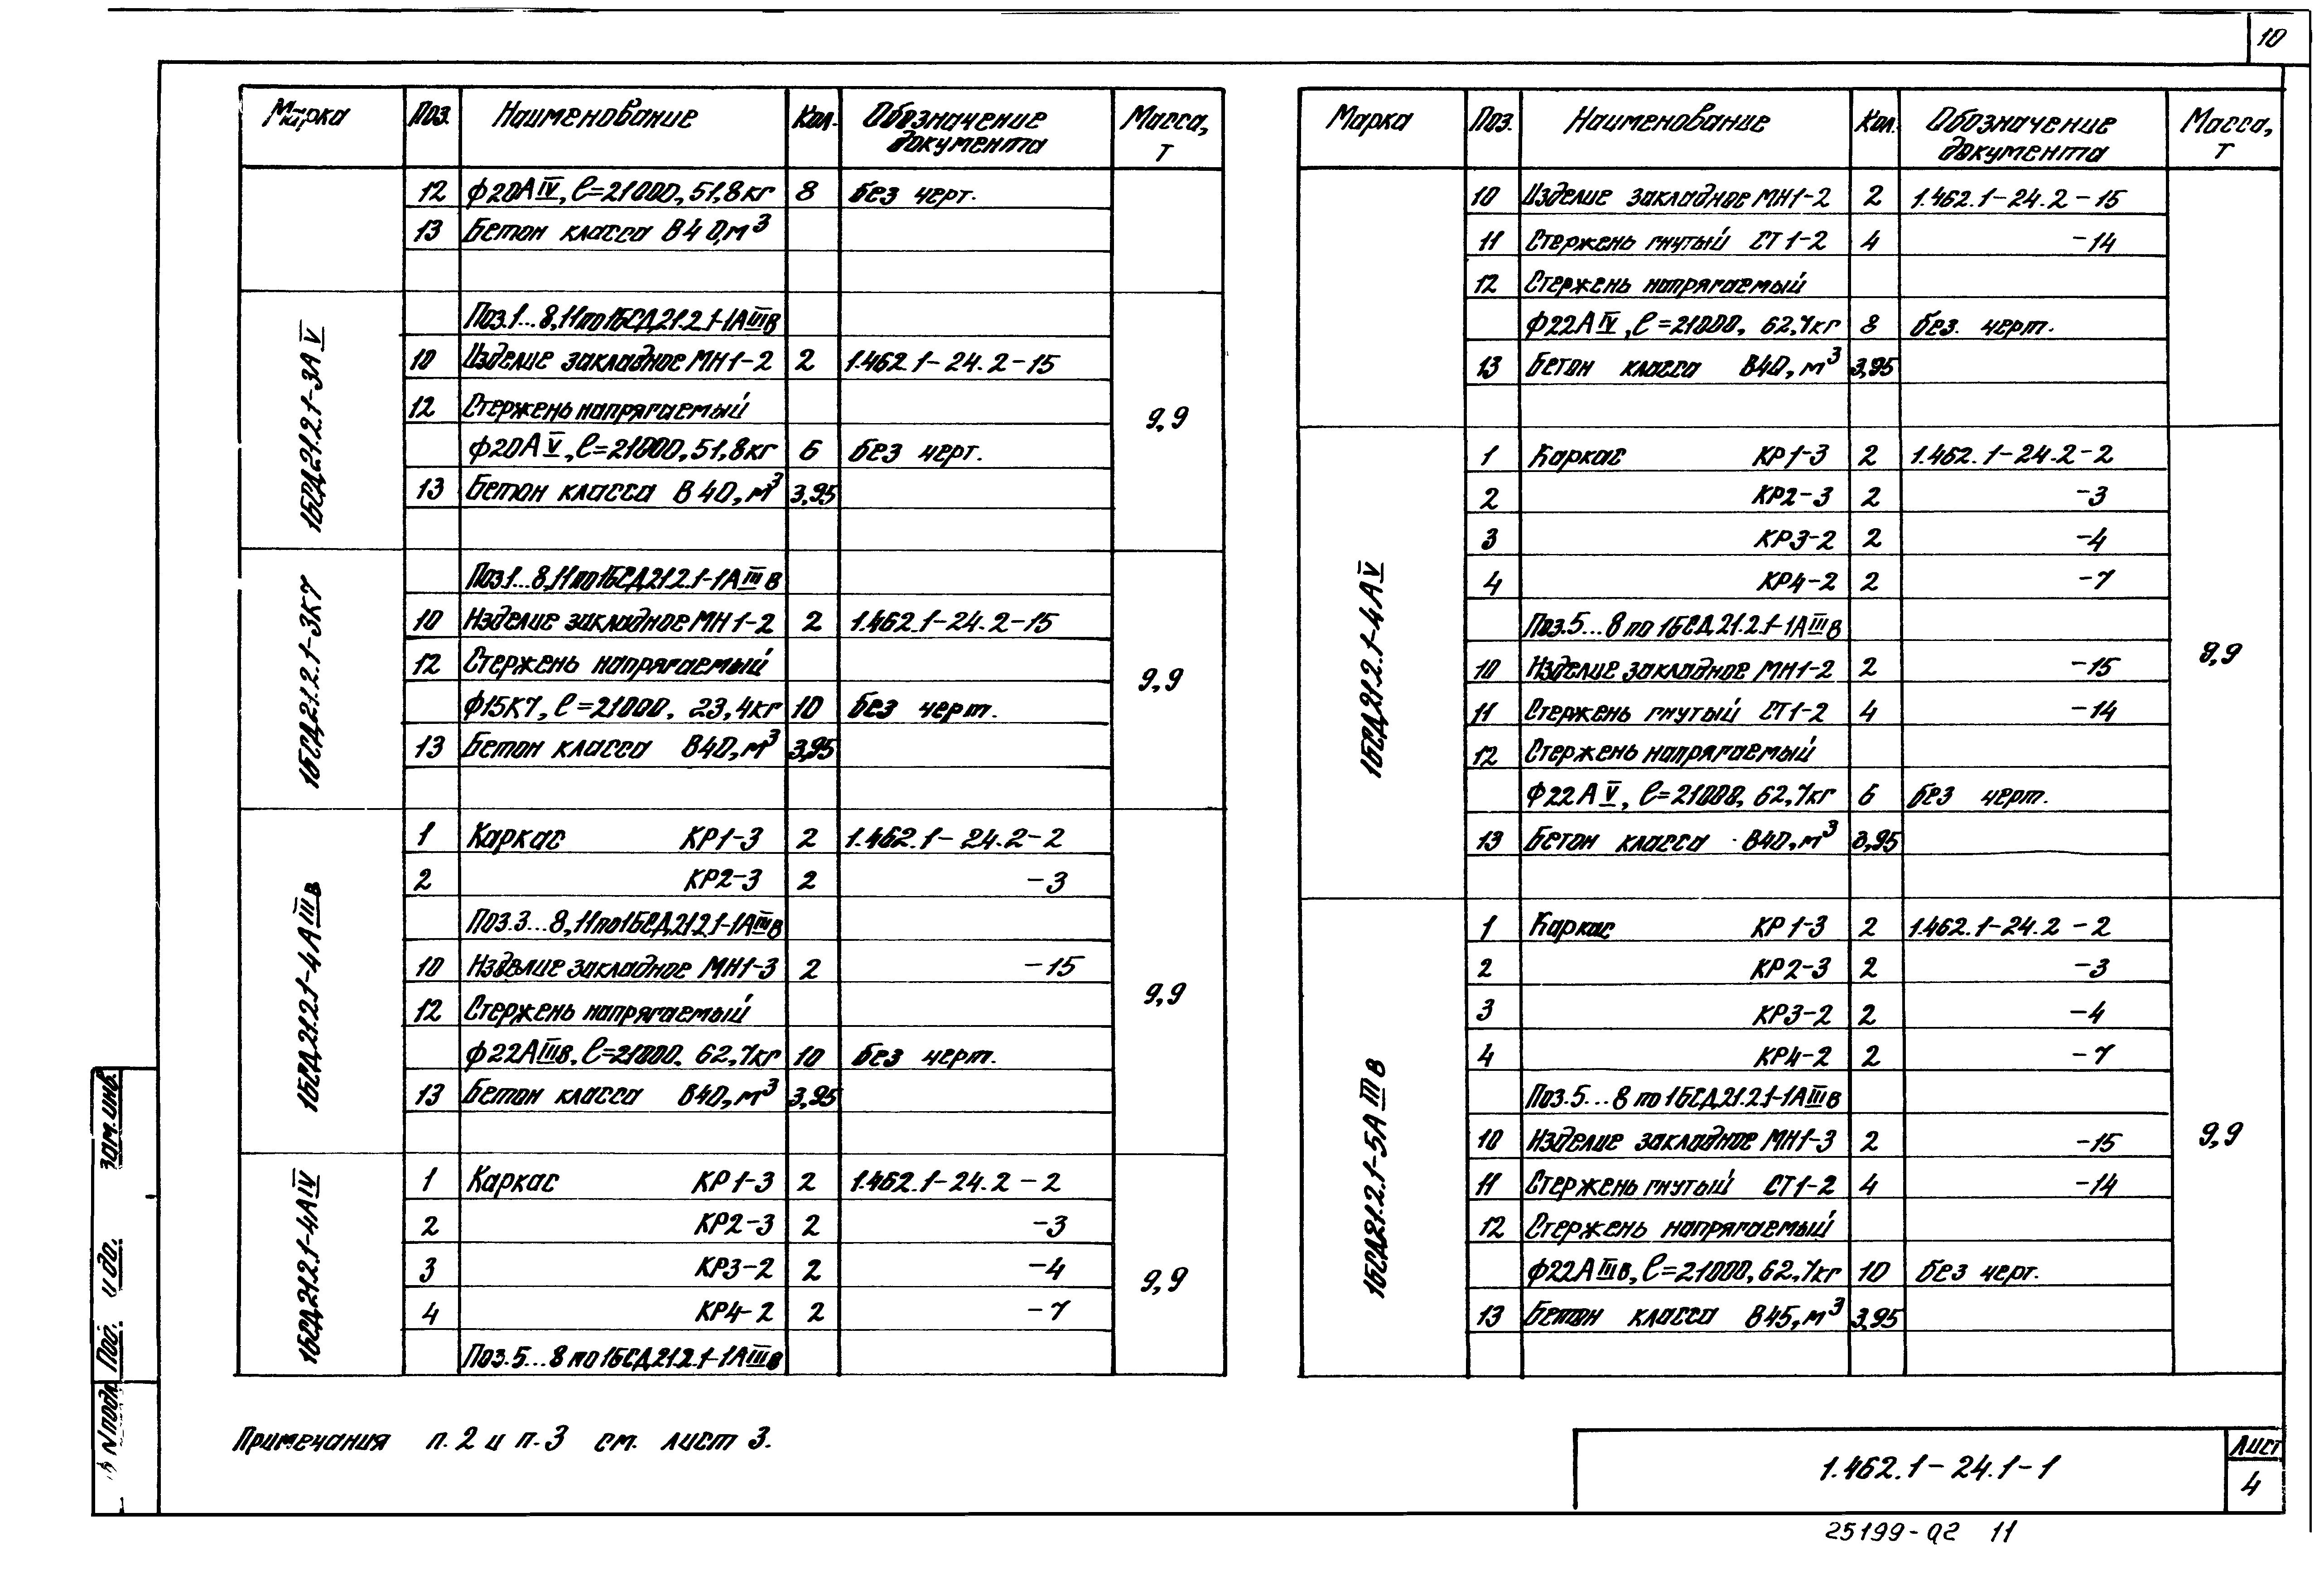 10
Марка Поз. Наименование Кол. Обозначение документа Масса, т
12 ф20АIV, ℓ=21000, 51,8кг 8 без черт.
13 Бетон класса В40, м³
1БСД21.2.1-3АV
Поз.1...8,11 по 1БСД21.2.1-1АIIIв
10 Изделие закладное МН1-2 2 1.462.1-24.2-15
12 Стержень напрягаемый
ф20АV, ℓ=21000, 51,8кг 6 без черт.
13 Бетон класса В40, м³ 3,95
9,9
1БСД21.2.1-3К7
Поз.1...8,11 по 1БСД21.2.1-1АIIIв
10 Изделие закладное МН1-2 2 1.462.1-24.2-15
12 Стержень напрягаемый
ф15К7, ℓ=21000, 23,4кг 10 без черт.
13 Бетон класса В40, м³ 3,95
9,9
1БСД21.2.1-4АIIIв
1 Каркас КР1-3 2 1.462.1-24.2-2
2 КР2-3 2 -3
Поз.3...8,11 по 1БСД21.2.1-1АIIIв
10 Изделие закладное МН1-3 2 -15
12 Стержень напрягаемый
ф22АIIIв, ℓ=21000, 62,7кг 10 без черт.
13 Бетон класса В40, м³ 3,95
9,9
1БСД21.2.1-4АIV
1 Каркас КР1-3 2 1.462.1-24.2-2
2 КР2-3 2 -3
3 КР3-2 2 -4
4 КР4-2 2 -7
Поз.5...8 по 1БСД21.2.1-1АIIIв
9,9
Марка Поз. Наименование Кол. Обозначение документа Масса, т
10 Изделие закладное МН1-2 2 1.462.1-24.2-15
11 Стержень гнутый СТ1-2 4 -14
12 Стержень напрягаемый
ф22АIV, ℓ=21000, 62,7кг 8 без. черт.
13 Бетон класса В40, м³ 3,95
1БСД21.2.1-4АV
1 Каркас КР1-3 2 1.462.1-24.2-2
2 КР2-3 2 -3
3 КР3-2 2 -4
4 КР4-2 2 -7
Поз.5...8 по 1БСД21.2.1-1АIIIв
10 Изделие закладное МН1-2 2 -15
11 Стержень гнутый СТ1-2 4 -14
12 Стержень напрягаемый
ф22АV, ℓ=21000, 62,7кг 6 без черт.
13 Бетон класса В40, м³ 3,95
9,9
1БСД21.2.1-5АIIIв
1 Каркас КР1-3 2 1.462.1-24.2-2
2 КР2-3 2 -3
3 КР3-2 2 -4
4 КР4-2 2 -7
Поз.5...8 по 1БСД21.2.1-1АIIIв
10 Изделие закладное МН1-3 2 -15
11 Стержень гнутый СТ1-2 4 -14
12 Стержень напрягаемый
ф22АIIIв, ℓ=21000, 62,7кг 10 без черт.
13 Бетон класса В45, м³ 3,95
9,9
Примечания п.2 и п.3 см. лист 3.
зам.инв.
Под. и да.
N подл
1.462.1-24.1-1
Лист
4
25199-02 11